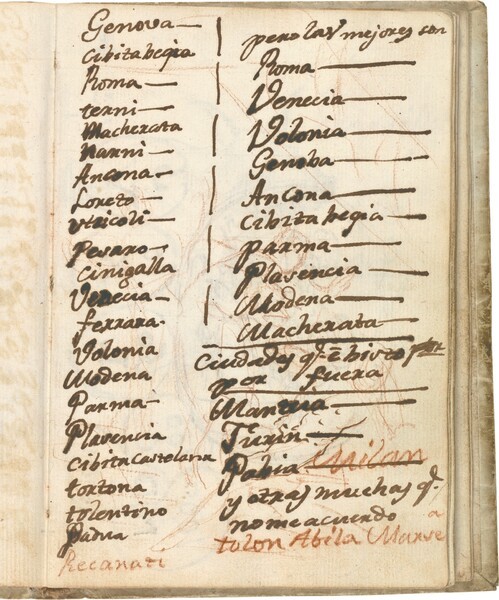 Genova—
Cibita begia
Roma—
terni—
Macherata
Narni—
Ancona—
Loreto—
uticoli—
Pesaro—
Cinigalla
Venecia—
ferrara.
Volonia
Modena
Parma—
Plasencia
Cibita Castelana
tortona
tolentino
Padua
Recanati
pero las mejores son
Roma—
Venecia—
Volonia—
Genoba—
Ancona—
Cibita begia—
parma—
Plasencia—
Modena—
Macherata—
Ciudades q.e E bisto
por fuera
Mantua—
Turin—
Pabia— Milan
y otras muchas q.e
no me acuerdo
tolon Abila Marse
a